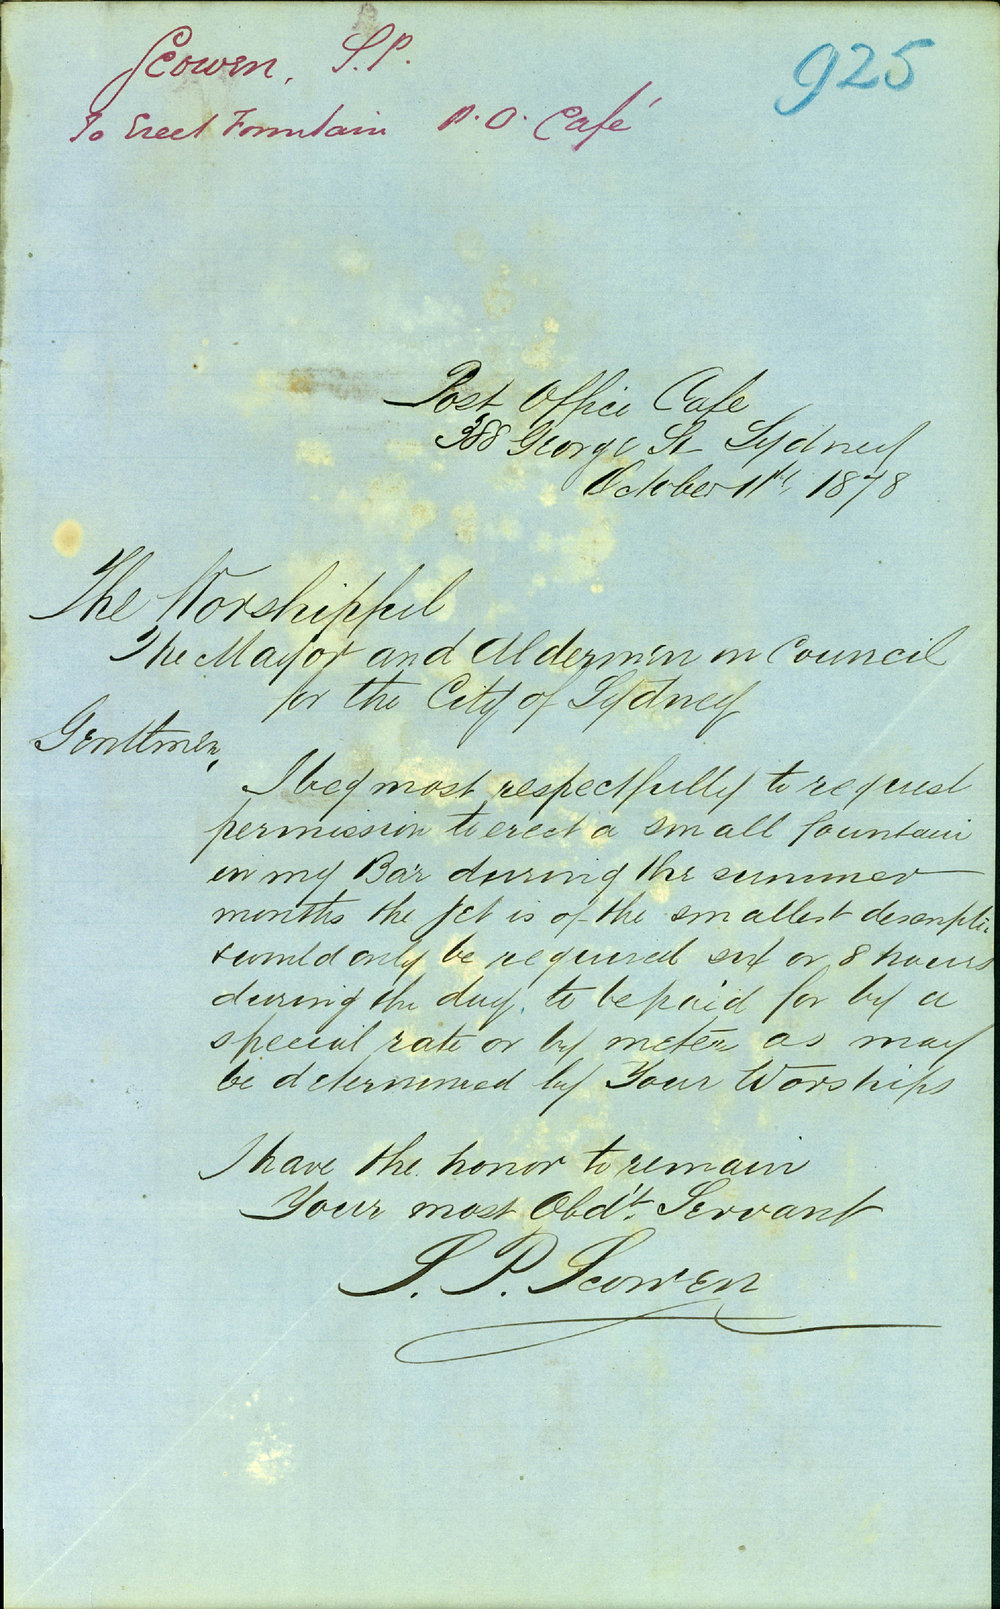 Scowen, S.P.
925
To Erect Fountain P.O. Café
Post Office Cafe
388 George St Sydney
October 11th 1878
The Worshipful
The Mayor and Aldermen in Council
for the City of Sydney
Gentlmen,
I beg most respectfully to request
permission to erect a small fountain
in my Bar during the summer
months the jet is of the smallest descriptio
& would only be required six or 8 hours
during the day, to be paid for by a
special rate or by meter as may
be determined by Your Worships
I have the honor to remain
Your most Obdt. Servant
S. P. Scowen